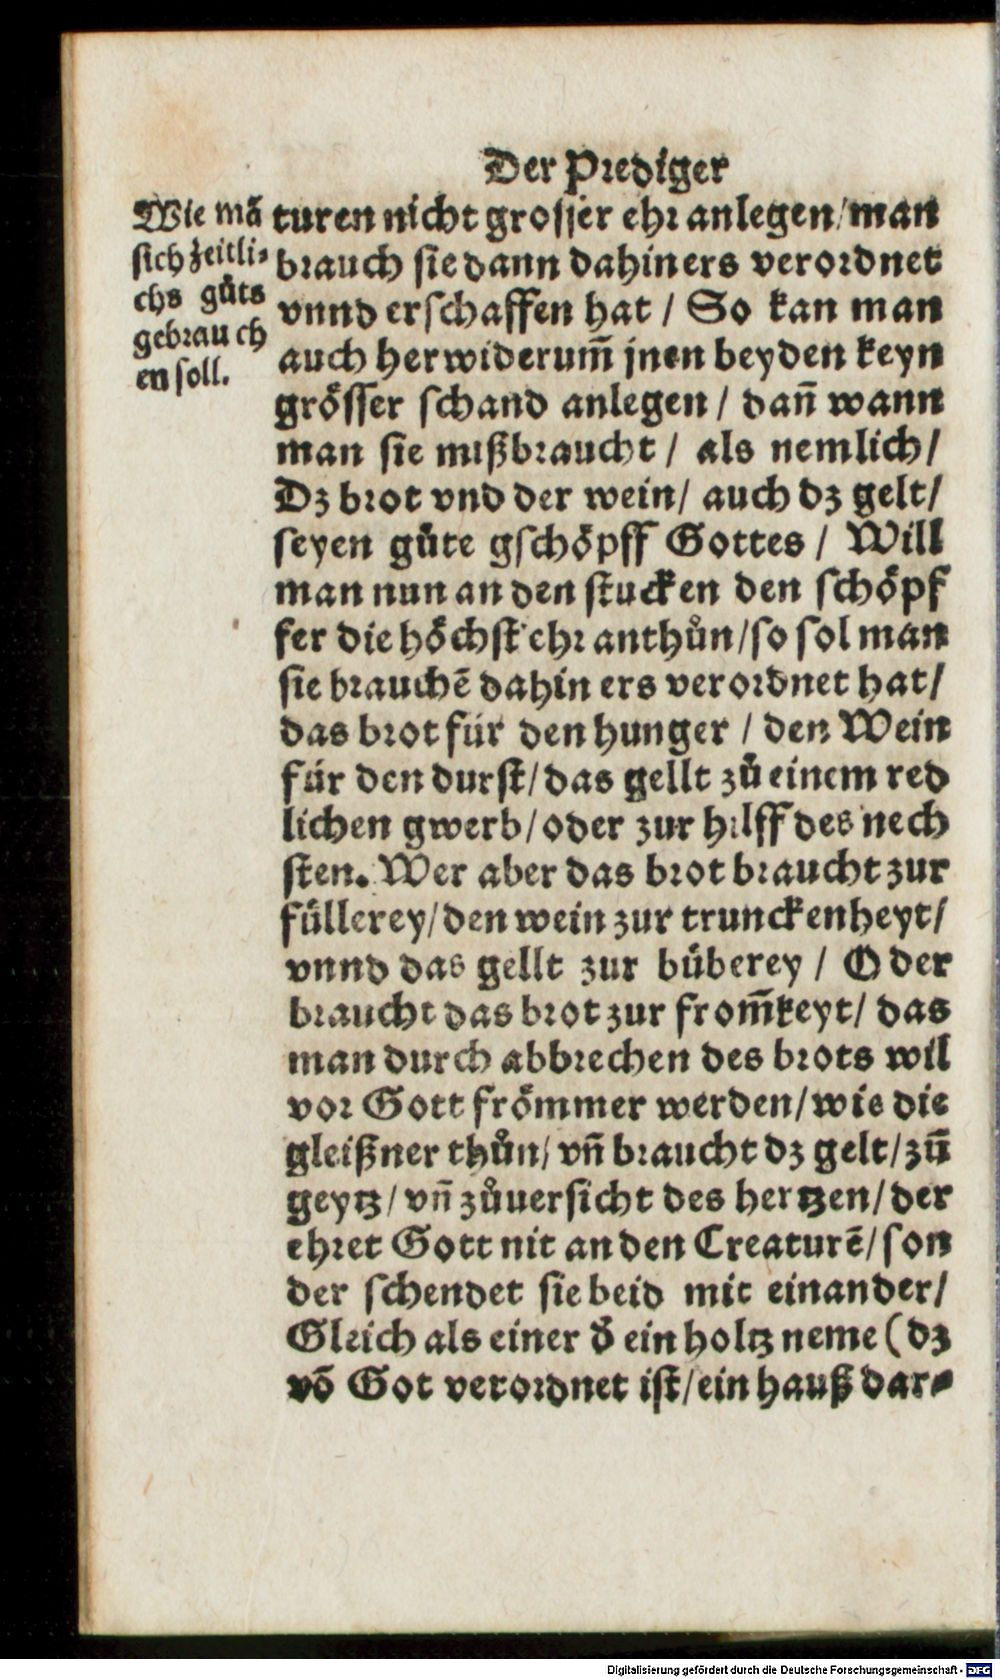 Der Prediger
Wie mā
sich zeitli⸗
chs gůts
gebrauch
en soll.
turen nicht grosser ehr anlegen/man
brauch sie dann dahin ers verordnet
vnnd erschaffen hat / So kan man
auch herwiderum̄ jnen beyden keyn
grösser schand anlegen / dañ wann
man sie mißbraucht / als nemlich/
Dz brot vnd der wein/ auch dz gelt/
seyen gůte gschöpff Gottes / Will
man nun an den stucken den schöpf
fer die höchst ehr anthůn/so sol man
sie brauchē dahin ers verordnet hat/
das brot für den hunger / den Wein
für den durst/das gellt zů einem red
lichen gwerb/oder zur hilff des nech
sten. Wer aber das brot braucht zur
füllerey/den wein zur trunckenheyt/
vnnd das gellt zur büberey / Oder
braucht das brot zur from̄keyt/ das
man durch abbrechen des brots wil
vor Gott frömmer werden/wie die
gleißner thůn/ vñ braucht dz gelt/zū
geytz/vñ zůuersicht des hertzen/der
ehret Gott nit an den Creaturē/son
der schendet sie beid mit einander/
Gleich als einer d̄ ein holtz neme (dz
vō Got verordnet ist/ein hauß dar⸗
Digitalisierung gefördert durch die Deutsche Forschungsgemeinschaft - DFG